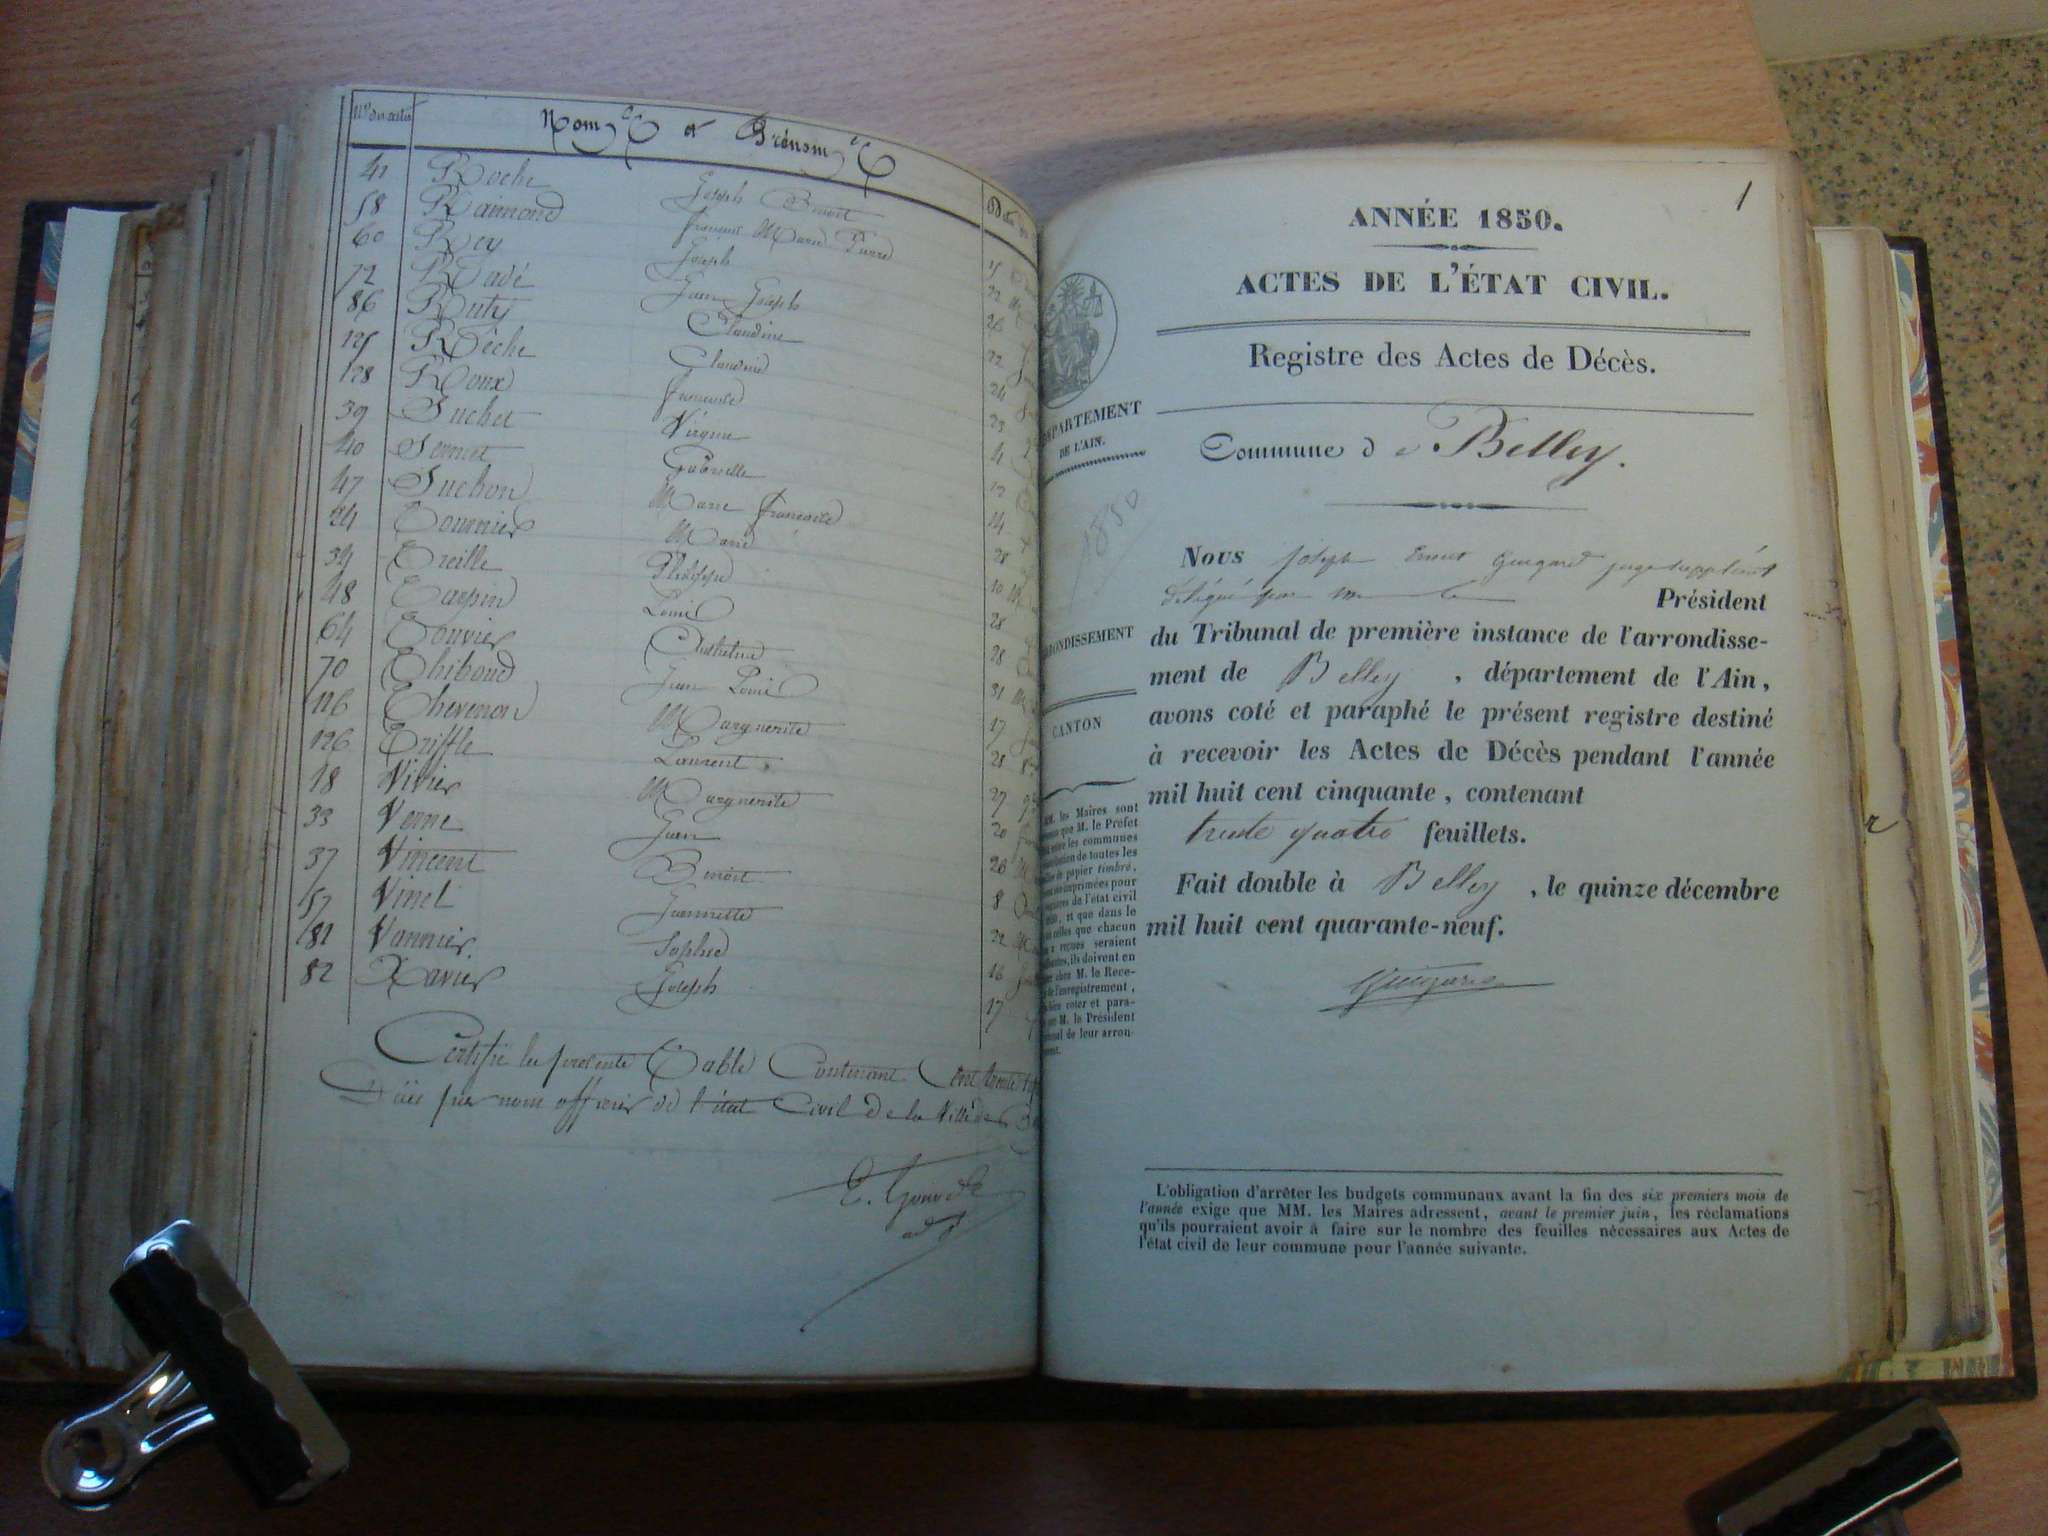 Nos des actes Noms et Prénoms
41 Roche Joseph Benoit
58 Raimond François Marie Pierre
60 Rey Joseph 15
72 Radé Jean Joseph 22
86 Ruty Claudine 26
125 Rêche Claudine 22
128 Roux Françoise 24
39 Suchet Virginie 23
40 Sernet Gabrielle 4
47 Suchon Marie Françoise 12
24 Tournier Marie 14
34 Treille Philippe 28
48 Tarpin Louis 10
64 Touvier Anthelme 28
70 Thiboud Jean Louis 28
116 Thevenon Marguerite 31
126 Triffle Laurent 17
18 Vivier Marguerite 28
33 Verne Jean 27
37 Vincent Benoit 20
57 Vinet Jeannette 26
81 Vannier Sophie 8
82 Xavier Joseph 22
16
17
Certifié la présente Table Contenant Cent trente
Décès par nous officier de l'état Civil de la Ville de
1
ANNÉE 1850.
ACTES DE L'ÉTAT CIVIL.
Registre des Actes de Décès.
DÉPARTEMENT
DE L'AIN.
Commune de Belley.
1850
Nous Joseph Ernest Guigard juge suppléant
délégué par Président
ARRONDISSEMENT
du Tribunal de première instance de l'arrondisse-
ment de Belley, département de l'Ain,
CANTON
avons coté et paraphé le présent registre destiné
à recevoir les Actes de Décès pendant l'année
mil huit cent cinquante, contenant
trente quatre feuillets.
Fait double à Belley, le quinze décembre
mil huit cent quarante-neuf.
MM. les Maires sont
que M. le Préfet
les communes
de toutes les
de papier timbré,
imprimées pour
de l'état civil
, et que dans le
celles que chacun
reçues seraient
, ils doivent en
chez M. le Rece-
de l'enregistrement,
coter et para-
M. le Président
de leur arron-
L'obligation d'arrêter les budgets communaux avant la fin des six premiers mois de
l'année exige que MM. les Maires adressent, avant le premier juin, les réclamations
qu'ils pourraient avoir à faire sur le nombre des feuilles nécessaires aux Actes de
l'état civil de leur commune pour l'année suivante.